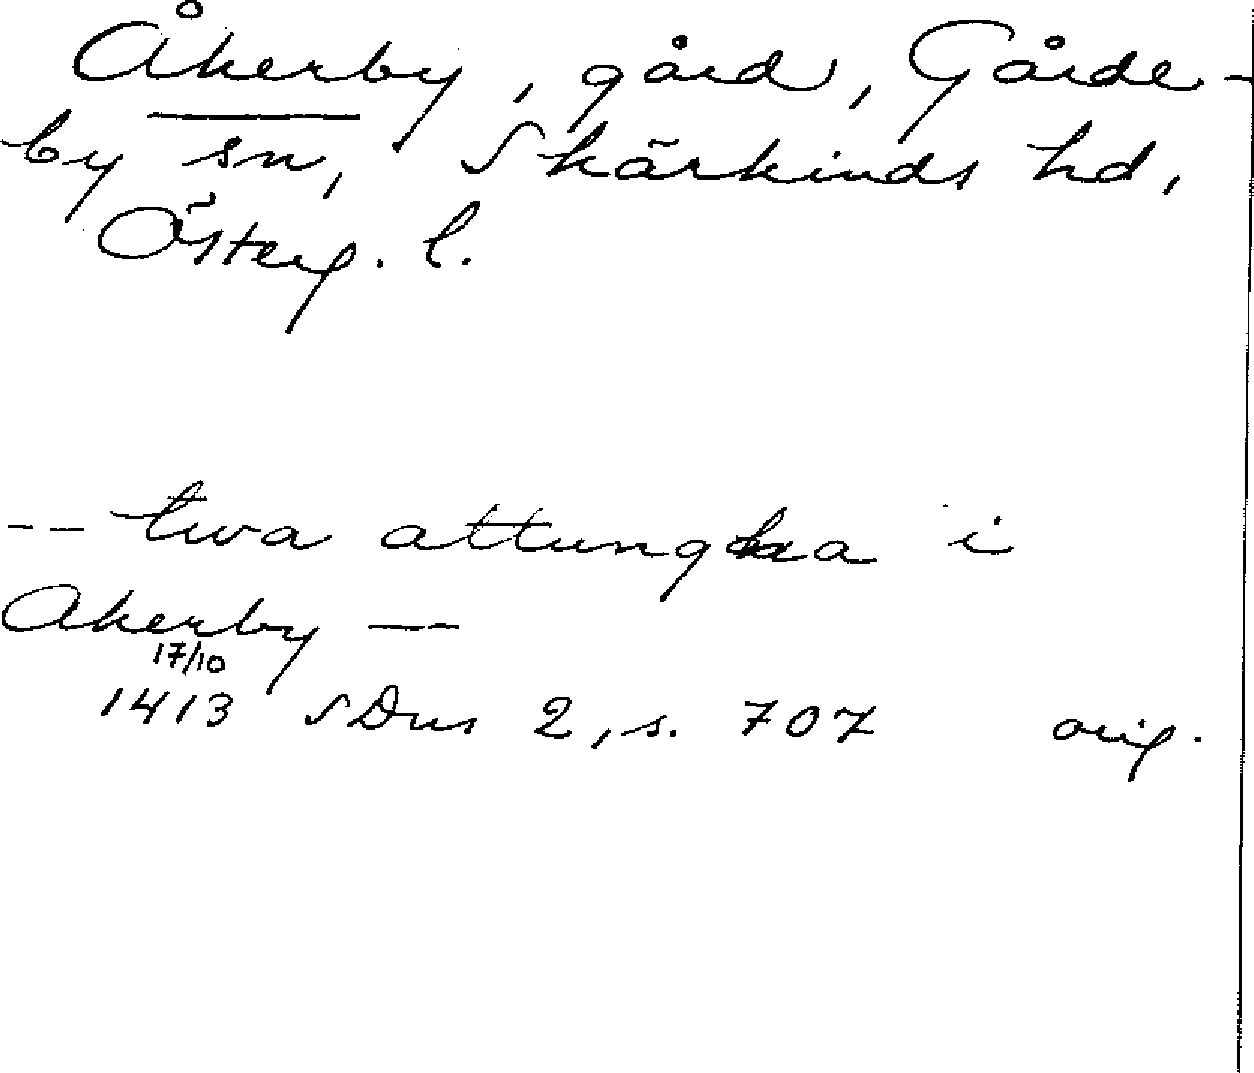 Åkerby, gård, Gårde-
by sn, Skärkinds hd,
Österg. l.
-- twa attungha i
Akerby --
17/10
1413 SDns 2, s. 707 orig.